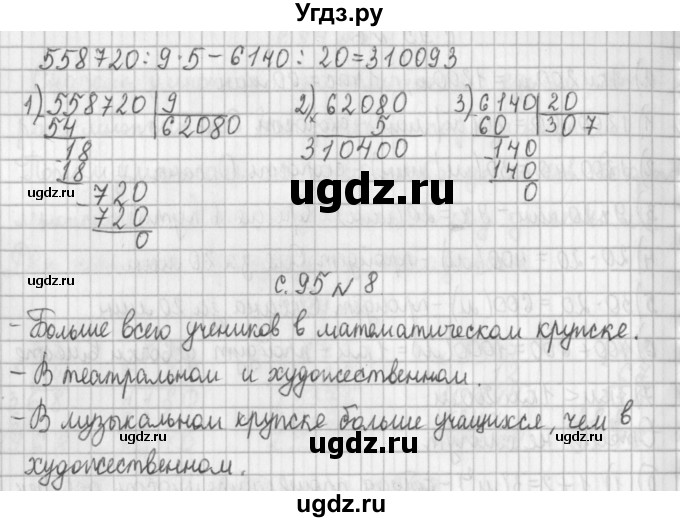 Угдз.ру
558720:9·5-6140:20=310093
1) 558720 | 9 2) 62080 3) 6140 | 20
54 62080 × 5 60 307
18 310400 140
18 140
720 0
720
0
с.95 № 8
- Больше всего учеников в математическом крупске.
- В театральном и художественном.
- В музыкальном крупске больше учащихся, чем в
художественном.
ugdz.ru
ugdz.ru
ugdz.ru
ugdz.ru
ugdz.ru
ugdz.ru
ugdz.ru
ugdz.ru
ugdz.ru
ugdz.ru